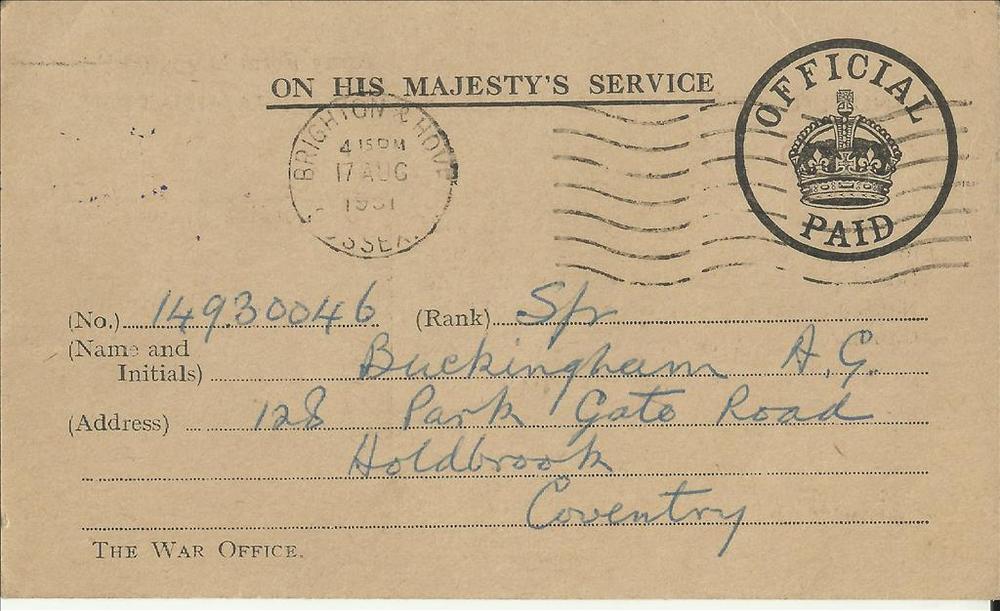 ON HIS MAJESTY'S SERVICE
OFFICIAL
PAID
BRIGHTON & HOVE
4 15 PM
17 AUG
1951
SUSSEX
(No.) 14930046 (Rank) Spr
(Name and
Initials) Buckingham A.G.
(Address) 128 Park Gate Road
Holdbrook
Coventry
THE WAR OFFICE.